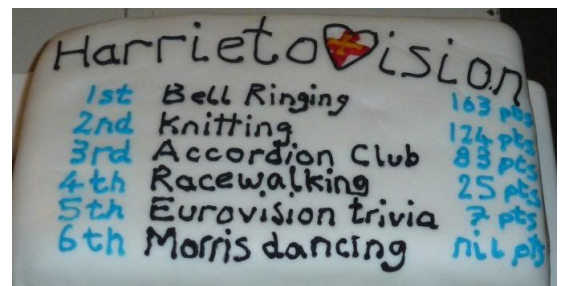 Harrietovision
1st Bell Ringing 163 pts
2nd Knitting 124 pts
3rd Accordion Club 83 pts
4th Racewalking 25 pts
5th Eurovision trivia 7 pts
6th Morris dancing nil pts